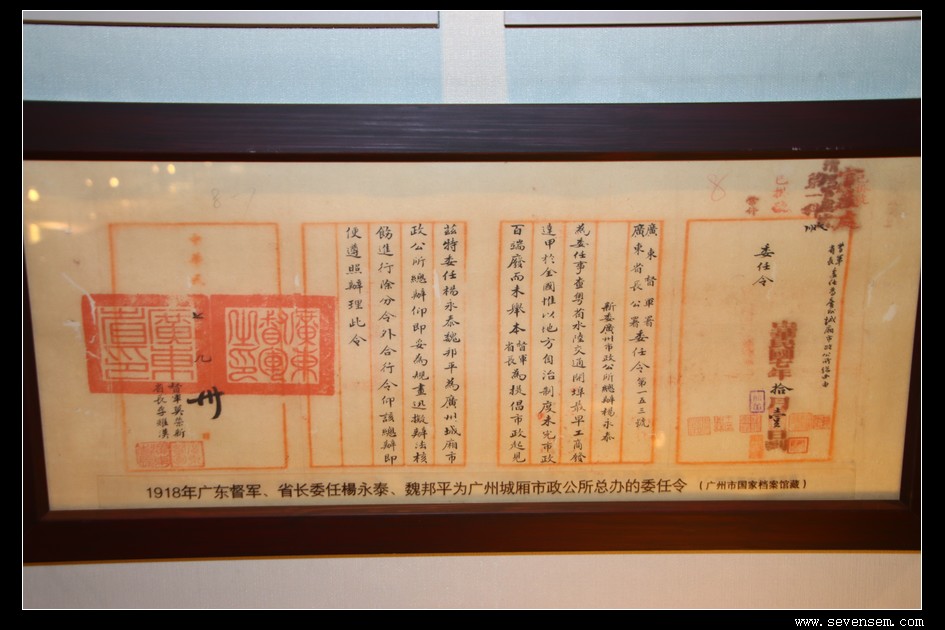 委任令
拾月壹日
廣東督軍署
廣東省長公署委任令第一五三號
新委廣州市政公所總辦楊永泰
為委任事查粵省水陸交通開埠最早工商發
達甲於全國惟以地方自治制度未完市政
百端廢而未舉本督軍省長為提倡市政起見
茲特委任楊永泰魏邦平為廣州城廂市
政公所總辦仰即妥為規畫迅擬辦法核
飭進行除分令外合行令仰該總辦即
便遵照辦理此令
中華民
九
廣東督軍之印
廣東省長之印
督軍莫榮新
省長李耀漢
1918年广东督军、省长委任楊永泰、魏邦平为广州城厢市政公所总办的委任令 （广州市国家档案馆藏）
www.sevensem.com